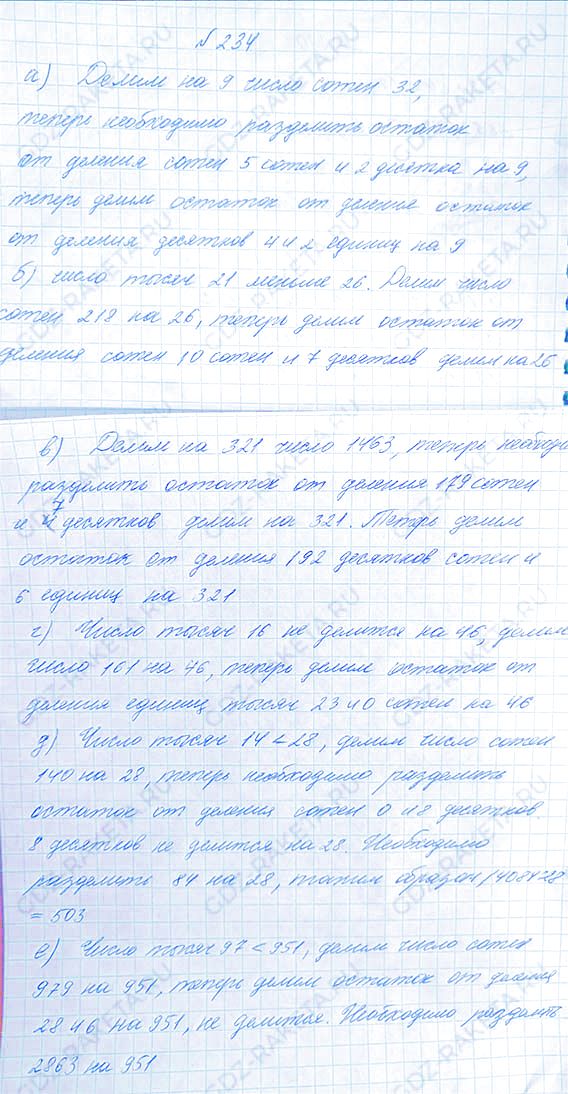 № 234
а) Делим на 9 число сотен 32,
теперь необходимо разделить остаток
от деления сотен 5 сотен и 2 десятка на 9,
теперь делим остаток от деления остаток
от деления десятков 4 и 2 единиц на 9
б) число тысяч 21 меньше 26. Делим число
сотен 218 на 26, теперь делим остаток от
деления сотен 10 сотен и 7 десятков делим на 26
в) Делим на 321 число 1463, теперь необходи
разделить остаток от деления 179 сотен
и 7 десятков делим на 321. Теперь делим
остаток от деления 192 десятков сотен и
6 единиц на 321
г) Число тысяч 16 не делится на 46, делим
число 161 на 46, теперь делим остаток от
деления единиц тысяч 23 40 сотен на 46
д) Число тысяч 14 < 28, делим число сотен
140 на 28, теперь необходимо разделить
остаток от деления сотен 0 и 8 десятков.
8 десятков не делится на 28. Необходимо
разделить 84 на 28, таким образом 14084:28
= 503
е) Число тысяч 97 < 951, делим число сотен
979 на 951, теперь делим остаток от деления
28 46 на 951, не делится. Необходимо разделить
2863 на 951